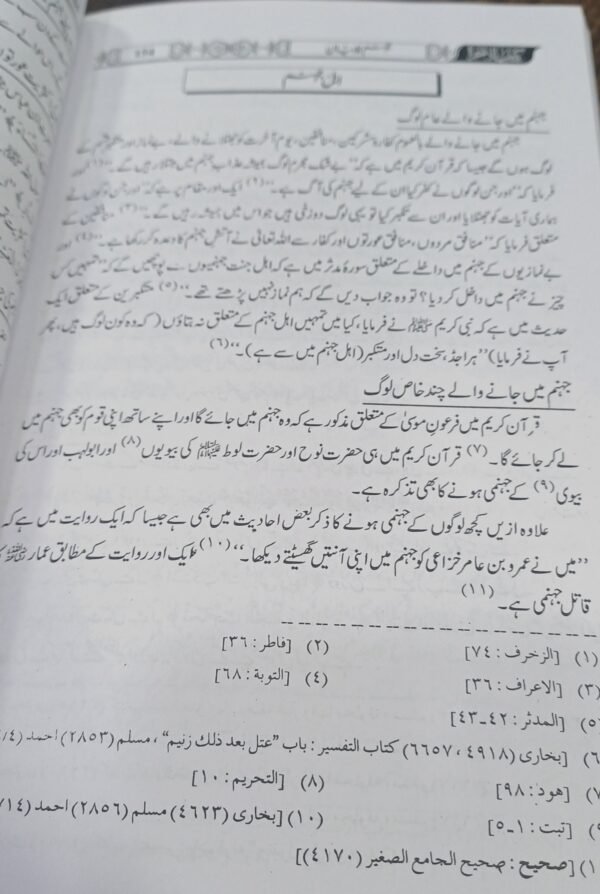 اہل جہنم
جہنم میں جانے والے عام لوگ
جہنم میں جانے والے بالعموم کفار، مشرکین، منافقین، یوم آخرت کو جھٹلانے والے، بے نماز اور متکبر قسم کے
لوگ ہوں گے جیسا کہ قرآن کریم میں ہے کہ ”بے شک مجرم لوگ ہمیشہ عذاب جہنم میں مبتلا رہیں گے۔“ (۱)
فرمایا کہ ”اور جن لوگوں نے کفر کیا ان کے لیے جہنم کی آگ ہے۔“ (۲) ایک اور مقام پر ہے کہ ”اور جن لوگوں نے
ہماری آیات کو جھٹلایا اور ان سے تکبر کیا تو یہی لوگ دوزخی ہیں جو اس میں ہمیشہ رہیں گے۔“ (۳) منافقین کے
متعلق فرمایا کہ ”منافق مردوں، منافق عورتوں اور کفار سے اللہ تعالیٰ نے آتش جہنم کا وعدہ کر رکھا ہے۔“ (۴) اور
بے نمازیوں کے جہنم میں داخلے کے متعلق سورۂ مدثر میں ہے کہ اہل جنت جہنمیوں سے پوچھیں گے کہ ”تمہیں کس
چیز نے جہنم میں داخل کر دیا؟ تو وہ جواب دیں گے کہ ہم نماز نہیں پڑھتے تھے۔“ (۵) متکبرین کے متعلق ایک
حدیث میں ہے کہ نبی کریم ﷺ نے فرمایا، کیا میں تمہیں اہل جہنم کے متعلق نہ بتاؤں (کہ وہ کون لوگ ہیں، پھر
آپ نے فرمایا) ”ہر اجڈ، سخت دل اور متکبر (اہل جہنم میں سے ہے)۔“ (۶)
جہنم میں جانے والے چند خاص لوگ
قرآن کریم میں فرعون موسیٰ کے متعلق مذکور ہے کہ وہ جہنم میں جائے گا اور اپنے ساتھ اپنی قوم کو بھی جہنم میں
لے کر جائے گا۔ (۷) قرآن کریم میں ہی حضرت نوح اور حضرت لوط ﷺ کی بیویوں (۸) اور ابولہب اور اس کی
بیوی (۹) کے جہنمی ہونے کا بھی تذکرہ ہے۔
علاوہ ازیں کچھ لوگوں کے جہنمی ہونے کا ذکر بعض احادیث میں بھی ہے جیسا کہ ایک روایت میں ہے کہ
”میں نے عمرو بن عامر خزاعی کو جہنم میں اپنی آنتیں گھسیٹتے دیکھا۔“ (۱۰) ایک اور روایت کے مطابق عمار
قاتل جہنمی ہے۔ (۱۱)
(۱) [الزخرف : ۷٤] (۲) [فاطر : ۳٦]
(۳) [الاعراف : ۳٦] (٤) [التوبة : ٦۸]
[المدثر : ٤۲-٤۳]
[بخاری (٤۹۱۸، ٦٦٥۷) کتاب التفسیر : باب ”عتل بعد ذلك زنیم“، مسلم (۲۸٥۳) احمد
[هود : ۹۸] (۸) [التحریم : ۱۰]
[تبت : ۱-٥] (۱۰) [بخاری (٤٦۲۳) مسلم (۲۸٥٦) احمد
[صحیح : صحیح الجامع الصغیر (٤۱۷۰)]